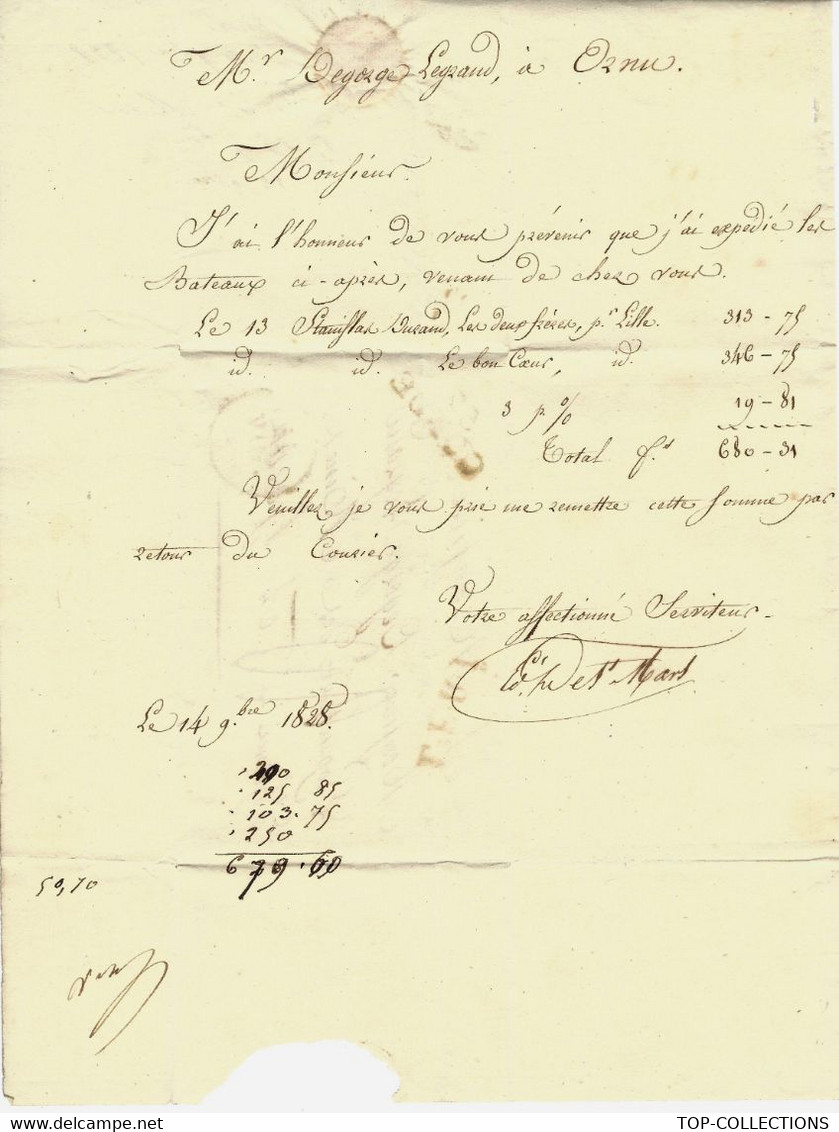 Mr. Degorge-Legrand, à Ornu.
Monsieur.
J'ai l'honneur de vous prévenir que j'ai expedié les
Bateaux ci-après, venant de chez vous.
Le 13 Stanislas Durand, Les deux frères, pr. Lille. 313-75
id. id. Le bon Cœur, id. 346-75
3 p% 19-81
Total fs. 680-31
Veuillez, je vous prie me remettre cette somme par
retour du Courier.
Votre affectionné Serviteur.
Le 14 9.bre 1828.
125 85
103.75
250
679.60
50,70
TOP-COLLECTIONS